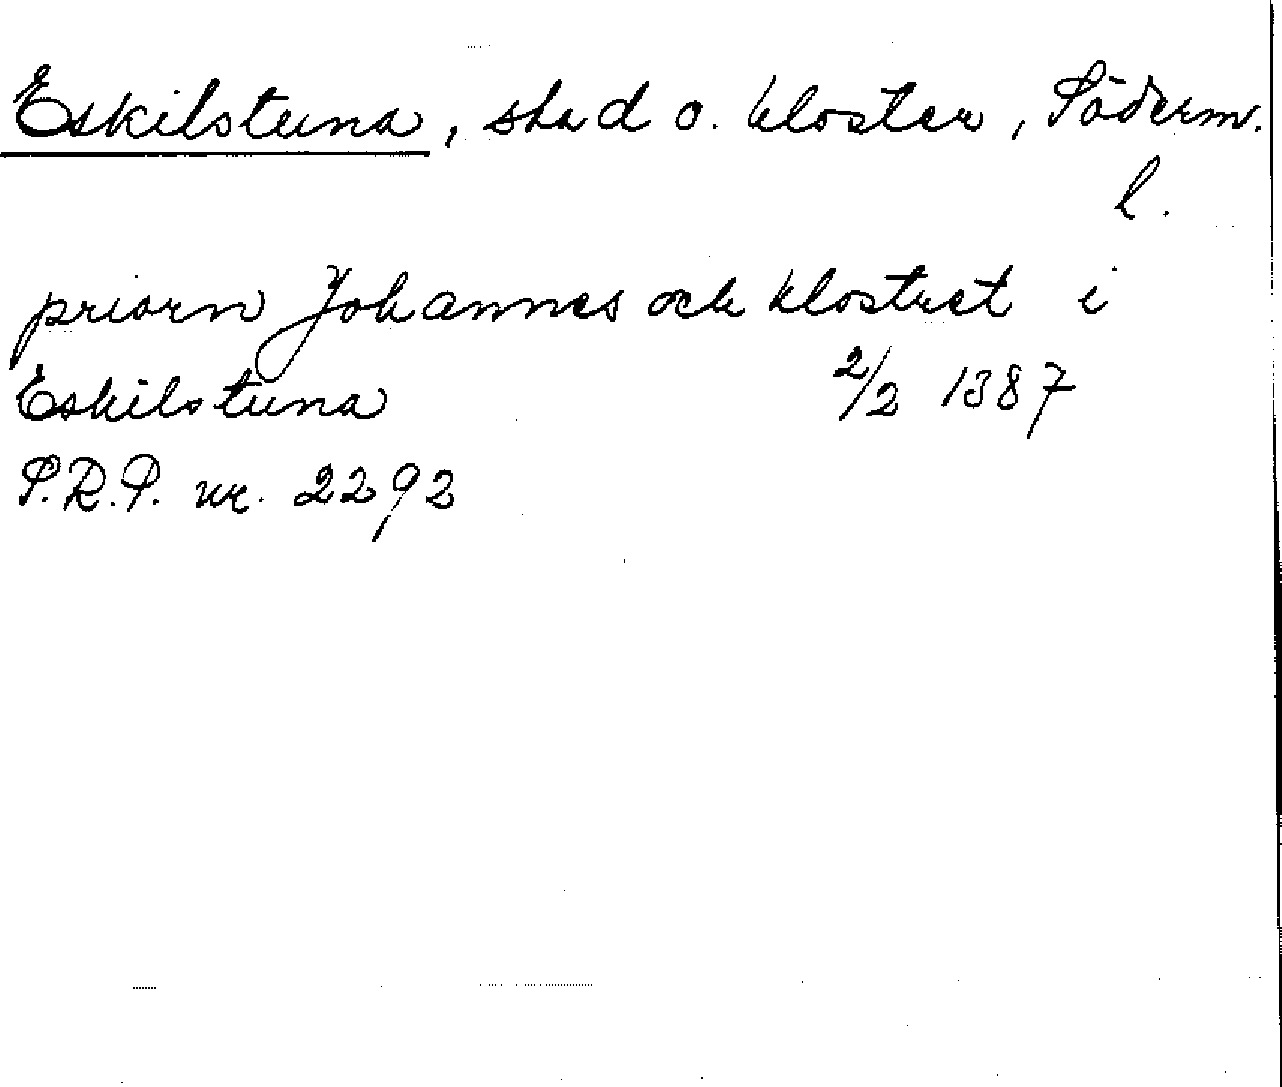 Eskilstuna, stad o. kloster, Söderm.
l.
priorn Johannes och klostret i
Eskilstuna 2/2 1387
S.R.P. nr. 2292